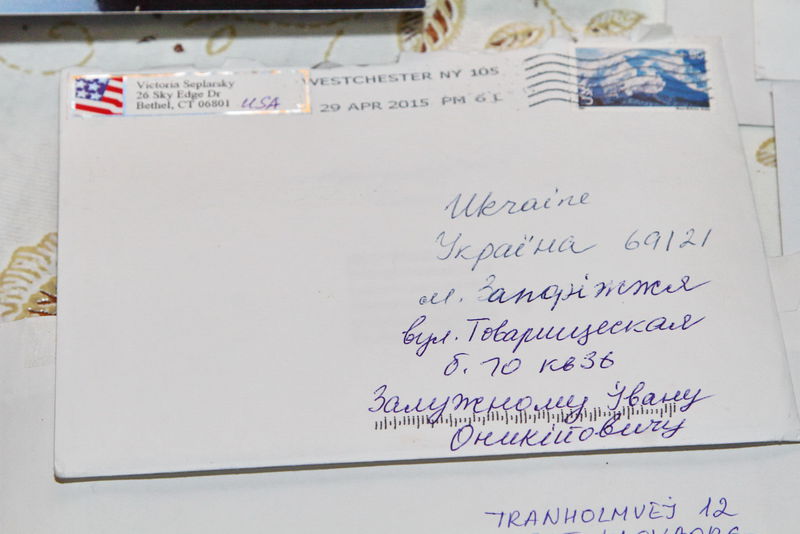 Victoria Seplarsky
26 Sky Edge Dr
Bethel, CT 06801 USA
WESTCHESTER NY 105
29 APR 2015 PM 6 L
USA
Ukraine
Україна 69121
м. Запоріжжя
вул. Товарищеская
б. 70 кв 36
Залужному Івану
Оникійовичу
TRANHOLMVEJ 12